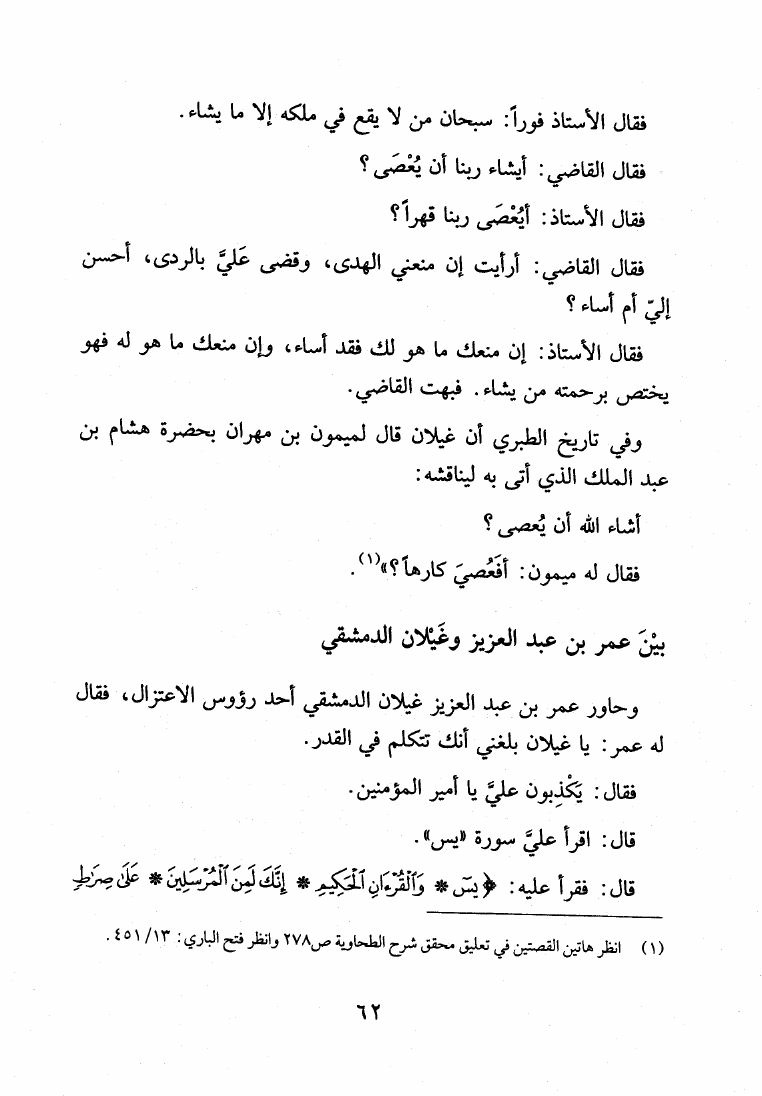 فقال الأستاذ فوراً: سبحان من لا يقع في ملكه إلا ما يشاء.
فقال القاضي: أيشاء ربنا أن يُعْصَى؟
فقال الأستاذ: أيُعْصَى ربنا قهراً؟
فقال القاضي: أرأيت إن منعني الهدى، وقضى عَليَّ بالردى، أحسن
إليّ أم أساء؟
فقال الأستاذ: إن منعك ما هو لك فقد أساء، وإن منعك ما هو له فهو
يختص برحمته من يشاء. فبهت القاضي.
وفي تاريخ الطبري أن غيلان قال لميمون بن مهران بحضرة هشام بن
عبد الملك الذي أتى به ليناقشه:
أشاء الله أن يُعصى؟
فقال له ميمون: أفَعُصيَ كارهاً؟»(١).
بيْنَ عمر بن عبد العزيز وغَيْلان الدمشقي
وحاور عمر بن عبد العزيز غيلان الدمشقي أحد رؤوس الاعتزال، فقال
له عمر: يا غيلان بلغني أنك تتكلم في القدر.
فقال: يَكْذِبون عليَّ يا أمير المؤمنين.
قال: اقرأ عليَّ سورة «يس».
قال: فقرأ عليه: ﴿يسٓ * وَٱلْقُرْءَانِ ٱلْحَكِيمِ * إِنَّكَ لَمِنَ ٱلْمُرْسَلِينَ * عَلَىٰ صِرَٰطٍ
(١) انظر هاتين القصتين في تعليق محقق شرح الطحاوية ص٢٧٨ وانظر فتح الباري: ١٣/ ٤٥١.
٦٢